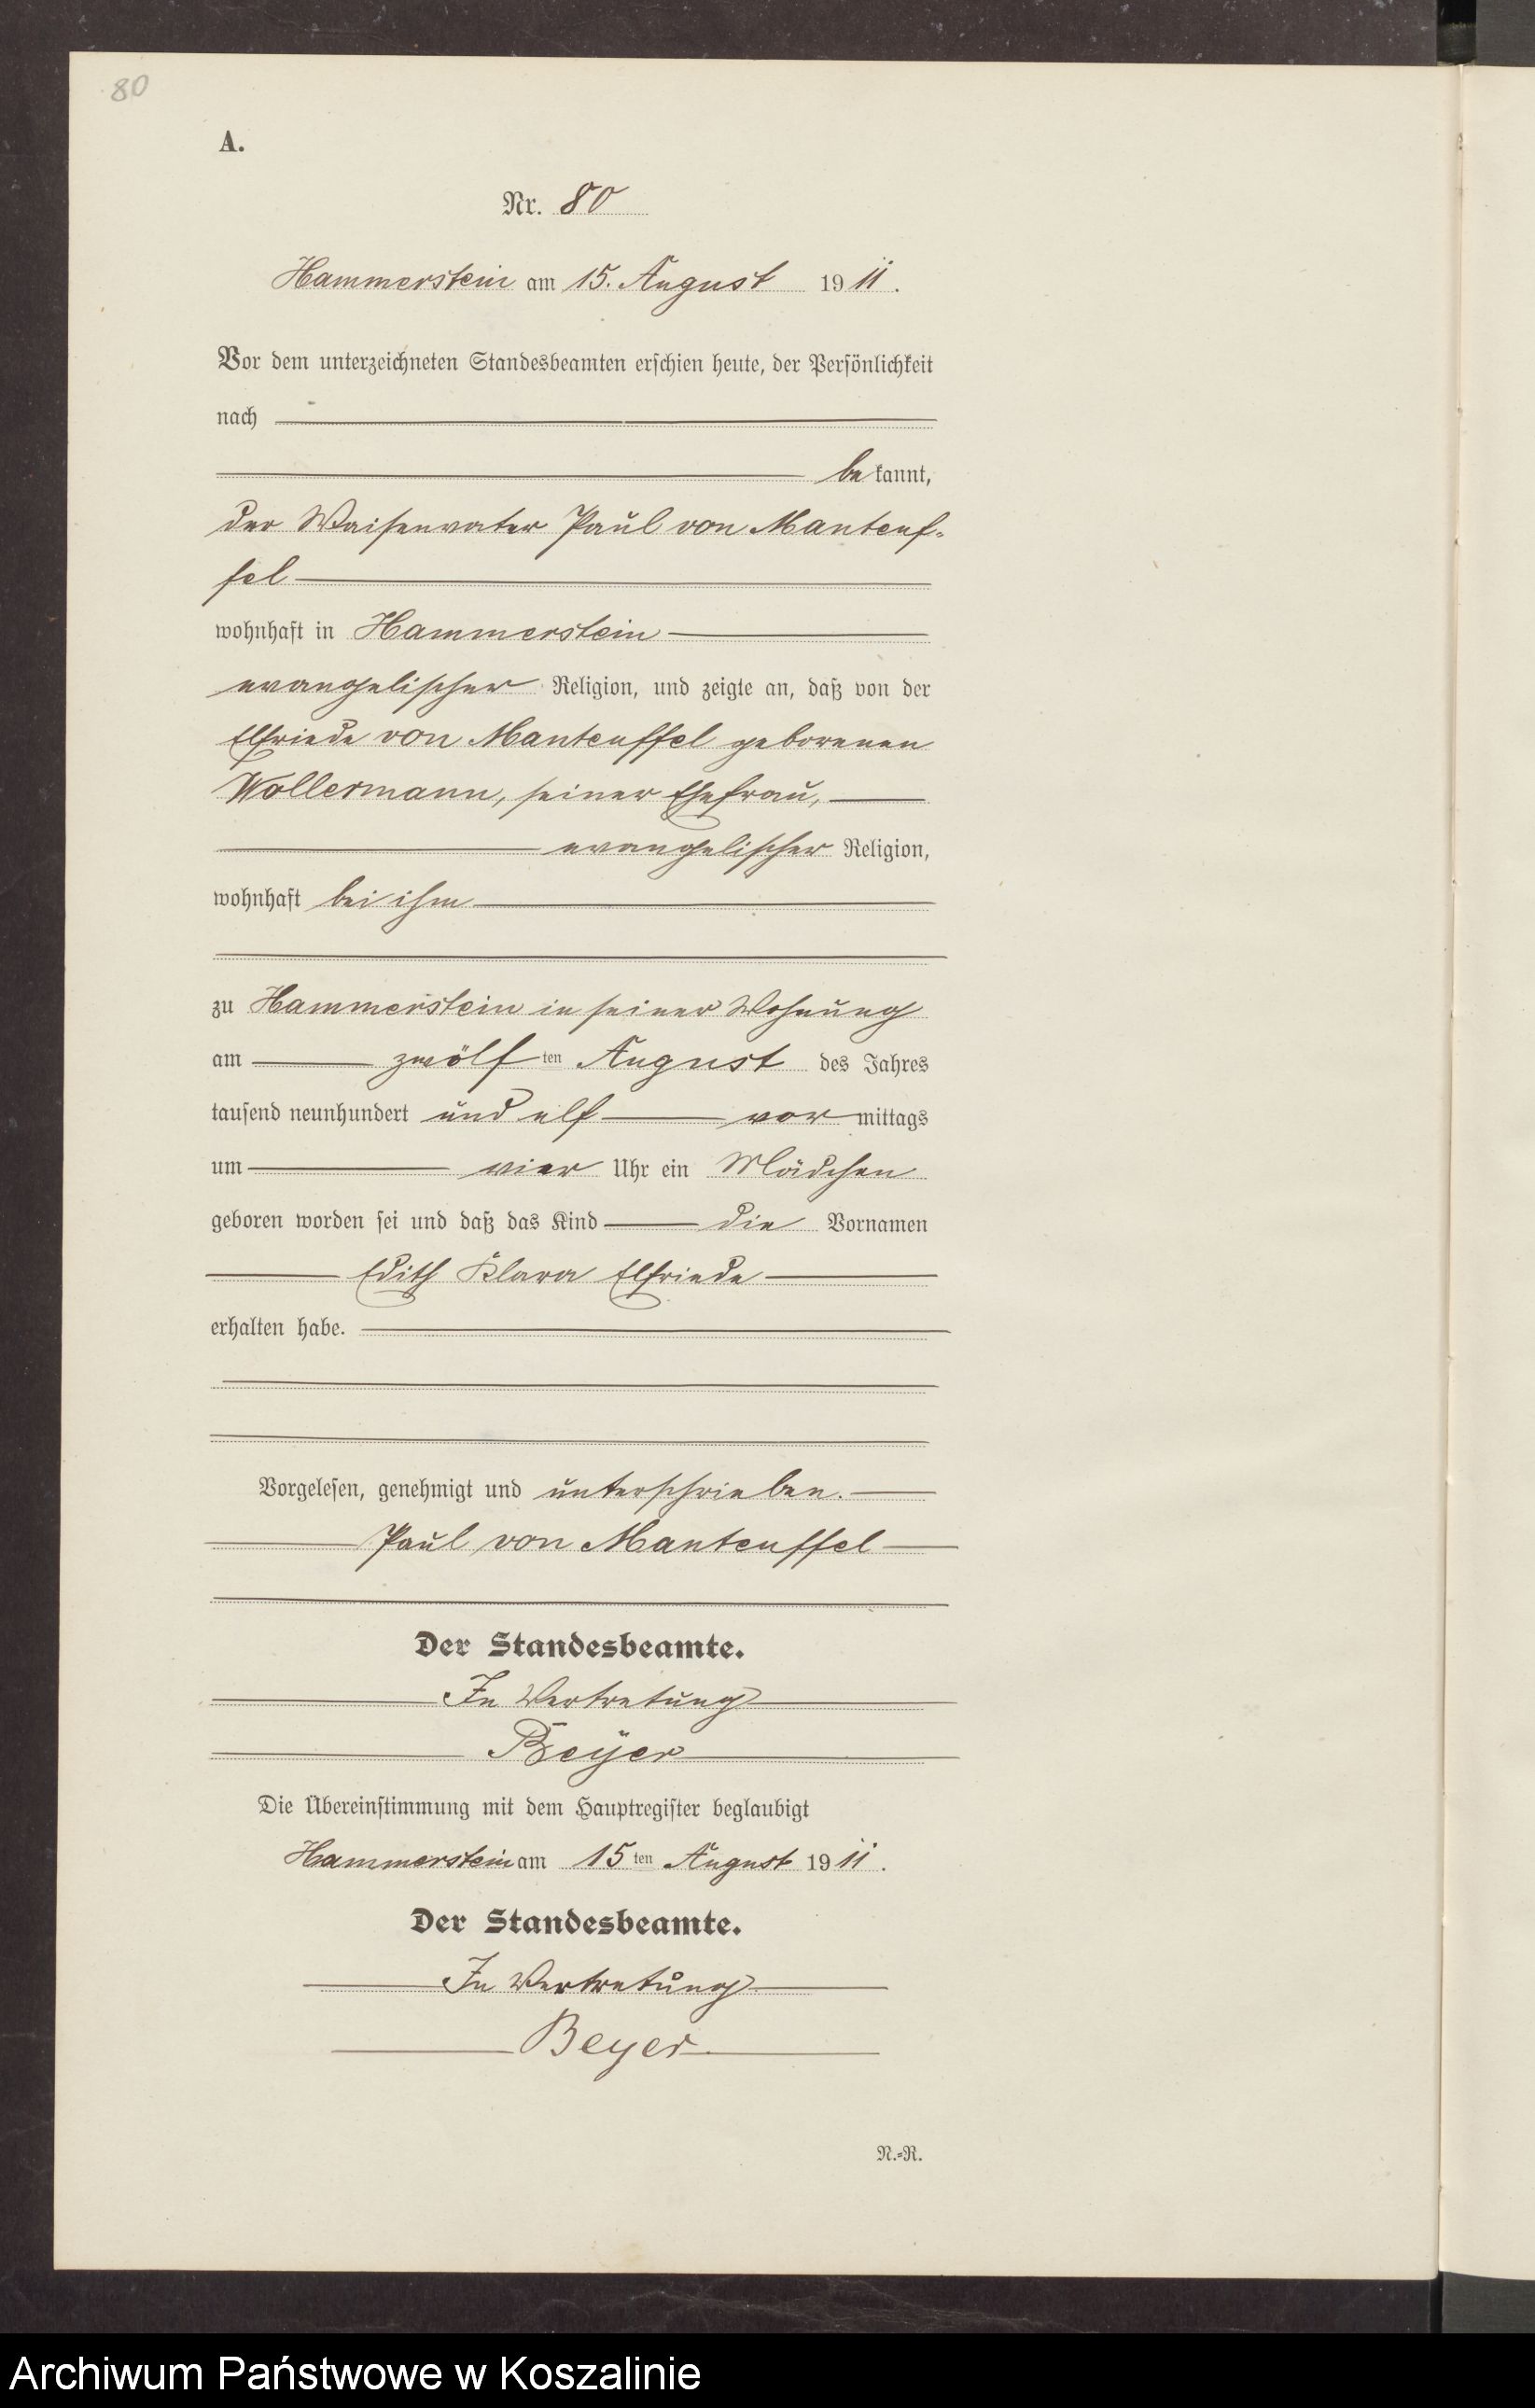 80
A.
Nr. 80
Hammerstein am 15. August 1911.
Vor dem unterzeichneten Standesbeamten erschien heute, der Persönlichkeit
nach
bekannt,
der Waisenvater Paul von Manteuf-
fel
wohnhaft in Hammerstein
evangelischer Religion, und zeigte an, daß von der
Elfriede von Manteuffel geborenen
Wollermann, seiner Ehefrau,
evangelischer Religion,
wohnhaft bei ihm
zu Hammerstein in seiner Wohnung
am zwölf ten August des Jahres
tausend neunhundert und elf vor mittags
um vier Uhr ein Mädchen
geboren worden sei und daß das Kind die Vornamen
Edith Klara Elfriede
erhalten habe.
Vorgelesen, genehmigt und unterschrieben.
Paul von Manteuffel
Der Standesbeamte.
In Vertretung
Beyer
Die Übereinstimmung mit dem Hauptregister beglaubigt
Hammerstein am 15 ten August 1911.
Der Standesbeamte.
In Vertretung
Beyer
N.=R.
Archiwum Państwowe w Koszalinie